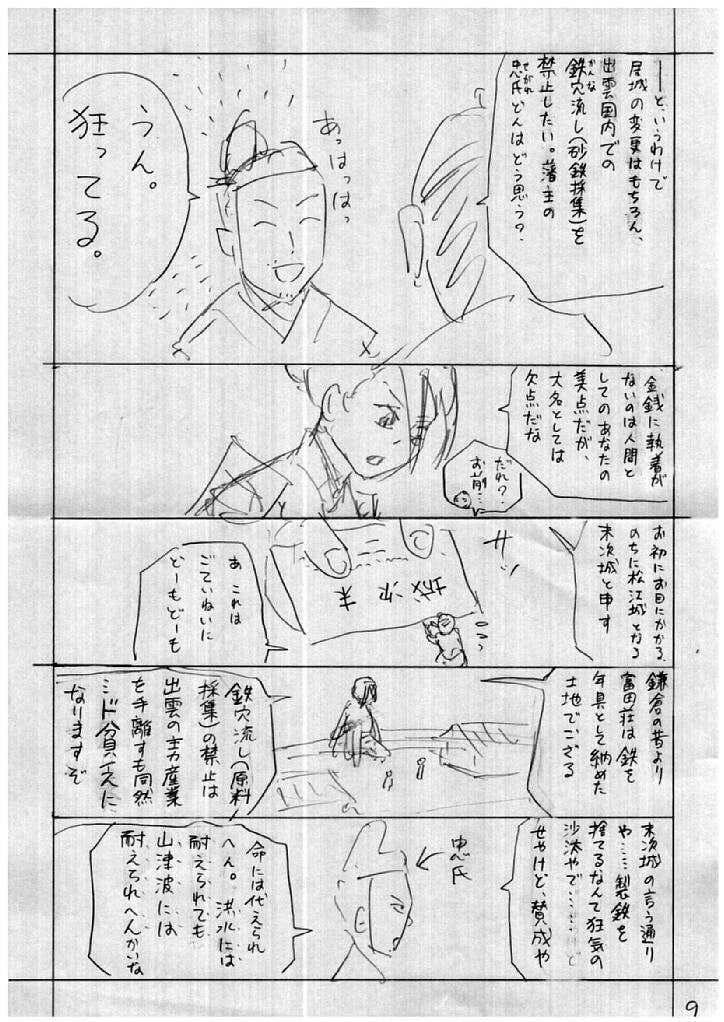 ――と、いうわけで
居城の変更はもちろん、
出雲国内での
鉄穴流し(砂鉄採集)を
かんな
禁止したい。藩主の
忠氏どんはどう思う?
せがれ
あっはっはっ
うん。
狂ってる。
金銭に執着が
ないのは人間と
してのあなたの
美点だが、
大名としては
欠点だな
だれ?
お前…
お初にお目にかかる、
のちに松江城となる
末次城と申す
サッ
末次城
あ これは
ごていねいに
どーもどーも
鎌倉の昔より
富田荘は鉄を
年貢として納めた
土地でござる
鉄穴流し(原料
採集)の禁止は
出雲の主力産業
を手離すも同然
ド貧乏に
なりますぞ
末次城の言う通り
や……製鉄を
捨てるなんて狂気の
沙汰やで……けど
せやけど、賛成や
忠氏
命には代えられ
へん。洪水には
耐えられても
山津波には
耐えられへんかいな
9